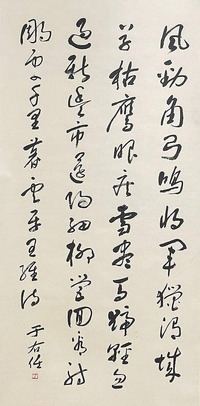 風勁角弓鳴將軍獵渭城
草枯鷹眼疾雪盡馬蹄輕忽
過新豐市還歸細柳營回看射
鵰處千里暮雲平王維詩
于右任